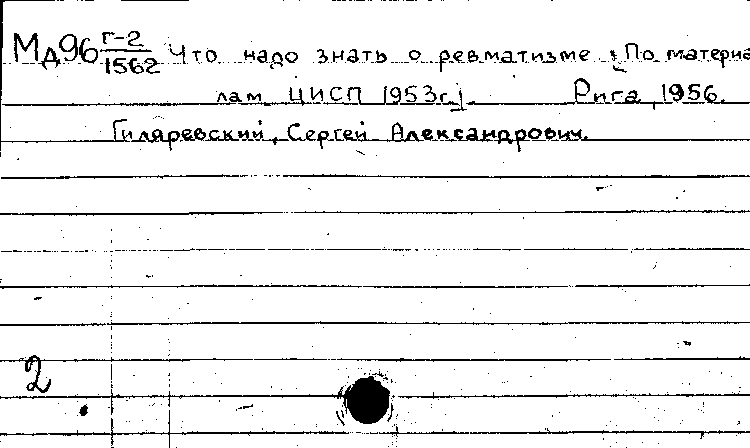 Мд96 Г-2/1562 Что надо знать о ревматизме [По материа
лам ЦИСП 1953г.]. Рига, 1956.
Гиляревский, Сергей Александрович.
2